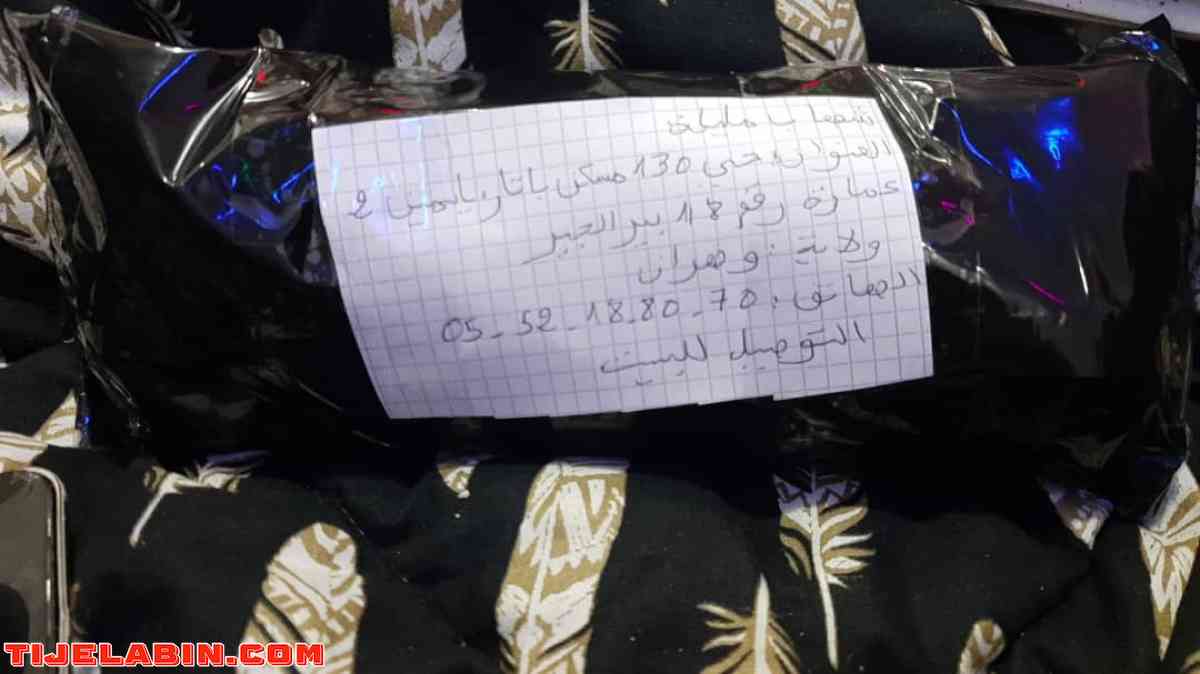 شهاب مليكة
العنوان: حي 130 مسكن باتار ياسمين 2
عمارة رقم 18 بير الجير
ولاية: وهران
الهاتف: 05-52-18-80-70
التوصيل للبيت
TIJELABIN.COM